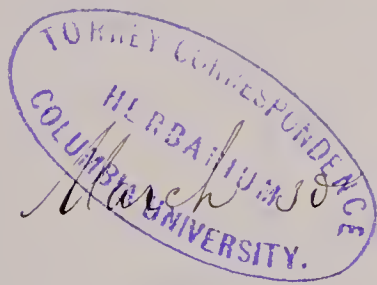 TORREY CORRESPONDENCE
HERBARIUM
COLUMBIA UNIVERSITY.
March 30